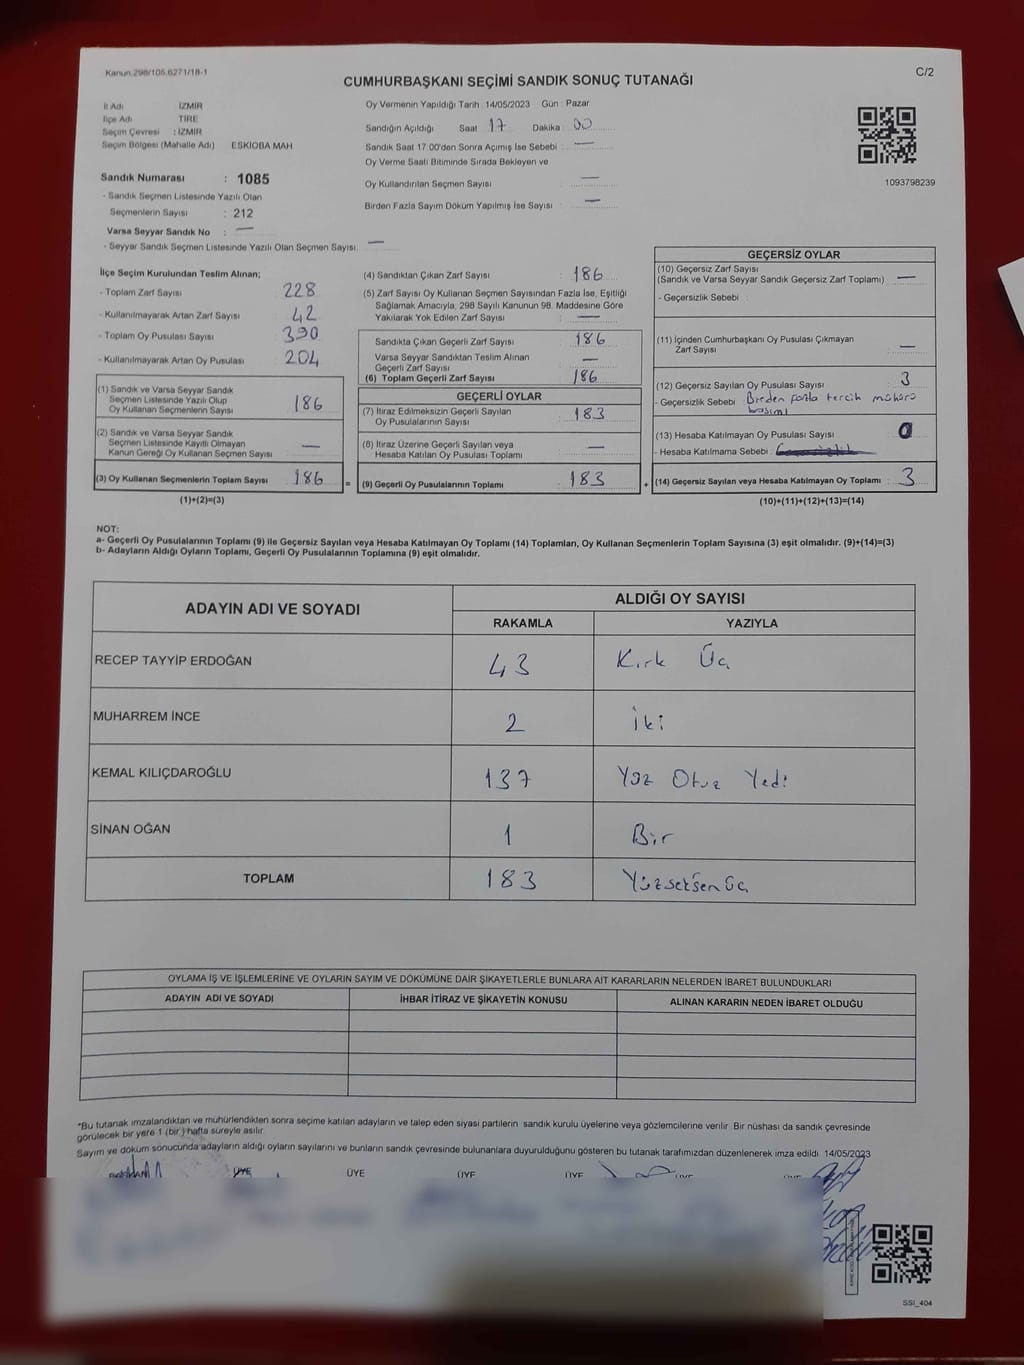 Kanun.298/105.6271/18-1
C/2
CUMHURBAŞKANI SEÇİMİ SANDIK SONUÇ TUTANAĞI
İl Adı İZMİR
İlçe Adı TİRE
Seçim Çevresi : İZMİR
Seçim Bölgesi (Mahalle Adı) ESKİOBA MAH
Sandık Numarası : 1085
- Sandık Seçmen Listesinde Yazılı Olan
Seçmenlerin Sayısı : 212
Varsa Seyyar Sandık No : —
- Seyyar Sandık Seçmen Listesinde Yazılı Olan Seçmen Sayısı: —
Oy Vermenin Yapıldığı Tarih : 14/05/2023 Gün : Pazar
Sandığın Açıldığı Saat 17 Dakika : 00
Sandık Saat 17:00'den Sonra Açılmış İse Sebebi : —
Oy Verme Saati Bitiminde Sırada Bekleyen ve
Oy Kullandırılan Seçmen Sayısı : —
Birden Fazla Sayım Döküm Yapılmış İse Sayısı : —
1093798239
İlçe Seçim Kurulundan Teslim Alınan;
- Toplam Zarf Sayısı : 228
- Kullanılmayarak Artan Zarf Sayısı : 42
- Toplam Oy Pusulası Sayısı : 390
- Kullanılmayarak Artan Oy Pusulası : 204
(1) Sandık ve Varsa Seyyar Sandık
Seçmen Listesinde Yazılı Olup
Oy Kullanan Seçmenlerin Sayısı : 186
(2) Sandık ve Varsa Seyyar Sandık
Seçmen Listesinde Kayıtlı Olmayan
Kanun Gereği Oy Kullanan Seçmen Sayısı : —
(3) Oy Kullanan Seçmenlerin Toplam Sayısı : 186
(1)+(2)=(3)
(4) Sandıktan Çıkan Zarf Sayısı : 186
(5) Zarf Sayısı Oy Kullanan Seçmen Sayısından Fazla İse, Eşitliği
Sağlamak Amacıyla, 298 Sayılı Kanunun 98. Maddesine Göre
Yakılarak Yok Edilen Zarf Sayısı : —
Sandıkta Çıkan Geçerli Zarf Sayısı : 186
Varsa Seyyar Sandıktan Teslim Alınan
Geçerli Zarf Sayısı : —
(6) Toplam Geçerli Zarf Sayısı : 186
GEÇERLİ OYLAR
(7) İtiraz Edilmeksizin Geçerli Sayılan
Oy Pusulalarının Sayısı : 183
(8) İtiraz Üzerine Geçerli Sayılan veya
Hesaba Katılan Oy Pusulası Toplamı : —
= (9) Geçerli Oy Pusulalarının Toplamı : 183 +
GEÇERSİZ OYLAR
(10) Geçersiz Zarf Sayısı
(Sandık ve Varsa Seyyar Sandık Geçersiz Zarf Toplamı) : —
- Geçersizlik Sebebi :
(11) İçinden Cumhurbaşkanı Oy Pusulası Çıkmayan
Zarf Sayısı : —
(12) Geçersiz Sayılan Oy Pusulası Sayısı : 3
- Geçersizlik Sebebi : Birden fazla tercih mührü
basımı
(13) Hesaba Katılmayan Oy Pusulası Sayısı : 0
- Hesaba Katılmama Sebebi :
(14) Geçersiz Sayılan veya Hesaba Katılmayan Oy Toplamı : 3
(10)+(11)+(12)+(13)=(14)
NOT:
a- Geçerli Oy Pusulalarının Toplamı (9) ile Geçersiz Sayılan veya Hesaba Katılmayan Oy Toplamı (14) Toplamları, Oy Kullanan Seçmenlerin Toplam Sayısına (3) eşit olmalıdır. (9)+(14)=(3)
b- Adayların Aldığı Oyların Toplamı, Geçerli Oy Pusulalarının Toplamına (9) eşit olmalıdır.
ADAYIN ADI VE SOYADI ALDIĞI OY SAYISI
RAKAMLA YAZIYLA
RECEP TAYYİP ERDOĞAN 43 Kırk Üç
MUHARREM İNCE 2 İki
KEMAL KILIÇDAROĞLU 137 Yüz Otuz Yedi
SİNAN OĞAN 1 Bir
TOPLAM 183 Yüzseksenüç
OYLAMA İŞ VE İŞLEMLERİNE VE OYLARIN SAYIM VE DÖKÜMÜNE DAİR ŞİKAYETLERLE BUNLARA AİT KARARLARIN NELERDEN İBARET BULUNDUKLARI
ADAYIN ADI VE SOYADI İHBAR İTİRAZ VE ŞİKAYETİN KONUSU ALINAN KARARIN NEDEN İBARET OLDUĞU
*Bu tutanak imzalandıktan ve mühürlendikten sonra seçime katılan adayların ve talep eden siyasi partilerin sandık kurulu üyelerine veya gözlemcilerine verilir. Bir nüshası da sandık çevresinde
görülecek bir yere 1 (bir) hafta süreyle asılır.
Sayım ve döküm sonucunda adayların aldığı oyların sayılarını ve bunların sandık çevresinde bulunanlara duyurulduğunu gösteren bu tutanak tarafımızdan düzenlenerek imza edildi. 14/05/2023
ÜYE ÜYE ÜYE ÜYE ÜYE
SSI_404